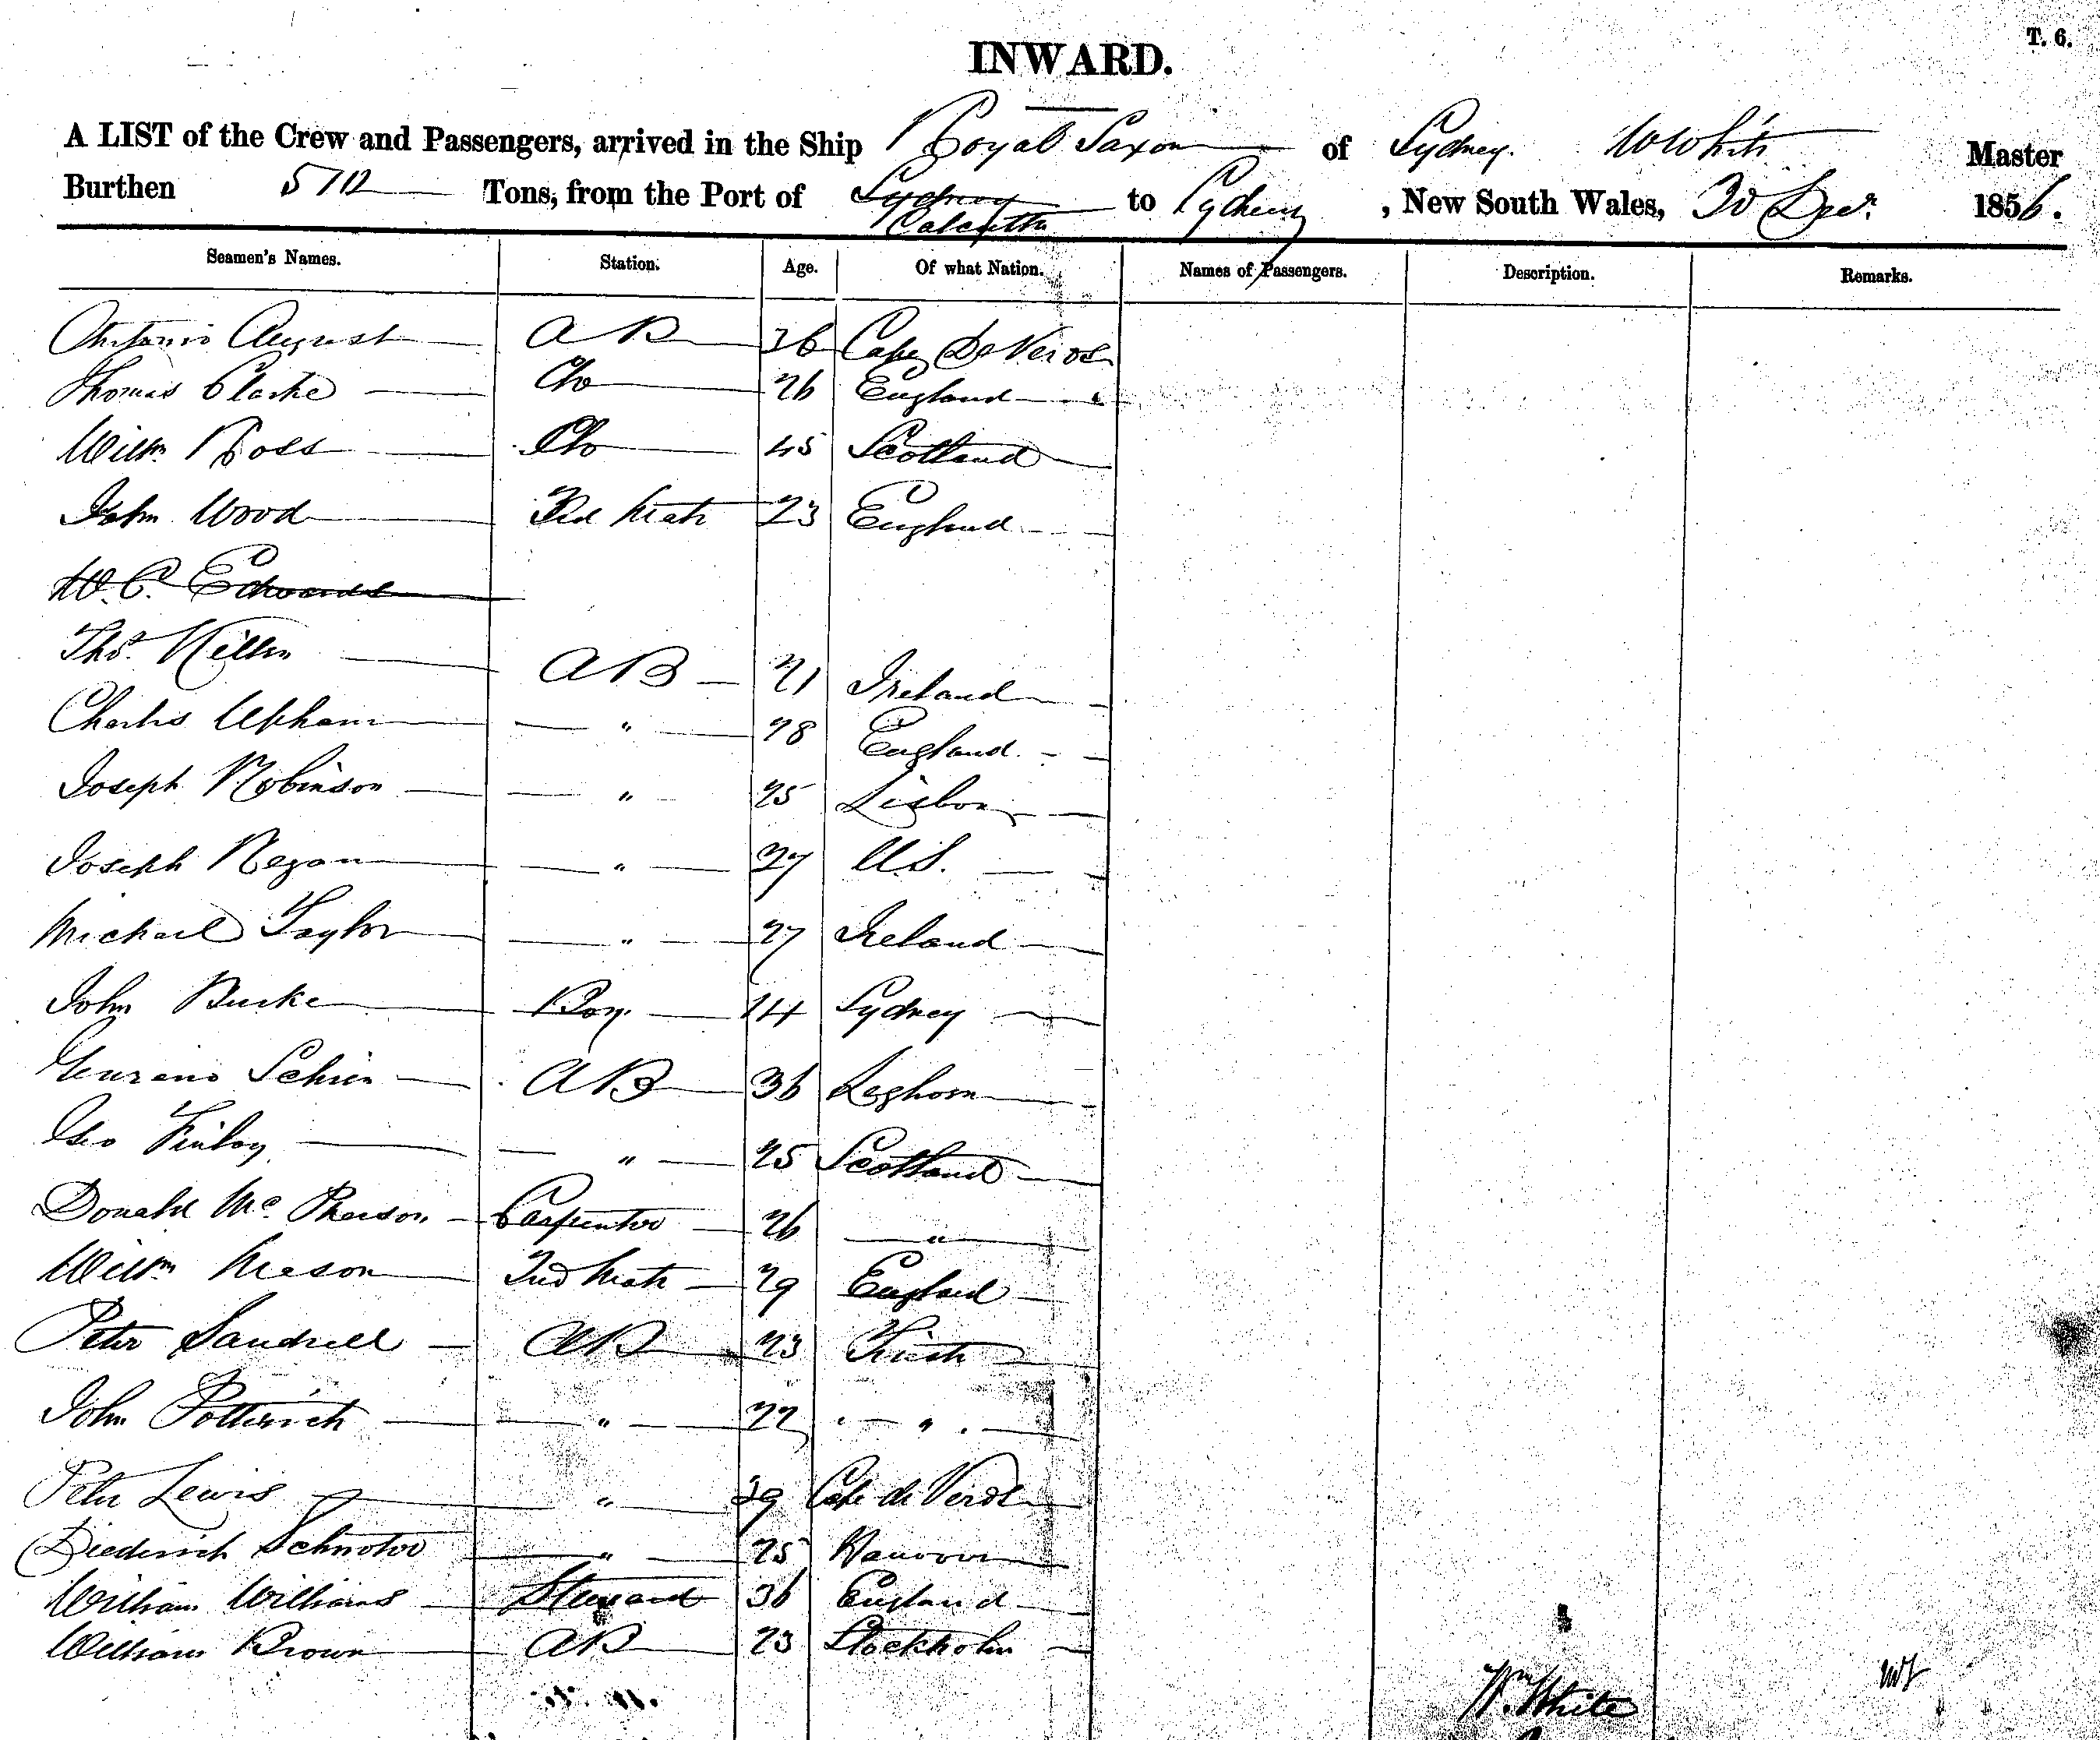 T. 6.
INWARD.
A LIST of the Crew and Passengers, arrived in the Ship Royal Saxon of Sydney. W White Master
Burthen 510 Tons, from the Port of Sydney Calcutta to Sydney, New South Wales, 30 Decr. 1856.
Seamen's Names. Station. Age. Of what Nation. Names of Passengers. Description. Remarks.
Antonio August AB 36 Cape De Verde
Thomas Clarke Do 26 England
Willm Ross Do 45 Scotland
John Wood Mate 23 England
W. C. Edwards
Thos. AB 21 Ireland
Charles Upham " 28 England
Joseph Robinson " 25 Lisbon
Joseph Regan " 27 U.S.
Michael Taylor " 27 Ireland
John Burke Boy 14 Sydney
AB 36 Leghorn
Geo Finlay " 25 Scotland
Donald Mc Pherson Carpenter 26 "
Willm Mason 2nd Mate 29 England
Peter AB 23
John " 22 "
Peter Lewis " 29 Cape de Verde
Diederich " 25 Hanover
William Williams Steward 36 England
William Brown AB 23 Stockholm
Wm. White